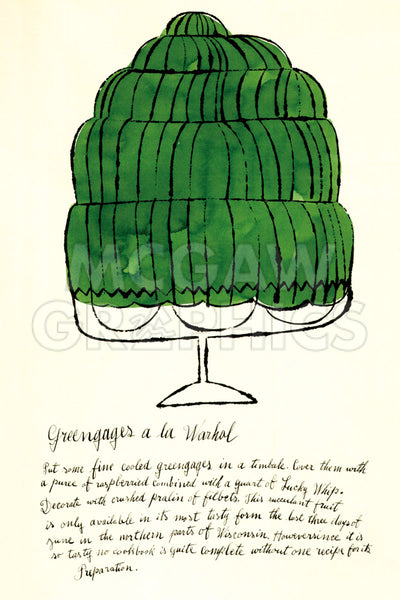 McGAW
GRAPHICS
Greengages a la Warhol
Put some fine cooled greengages in a timbale. Cover them with
a puree of raspberried combined wild a quart of Lucky Whip.
Decorate with crushed pralin of filbets. This succulent fruit
is only available in its most tasty form the last three days of
june in the northern parts of Wisconsin. Howeversince it is
so tasty no cookbook is quite complete without one recipe for its
Preparation.